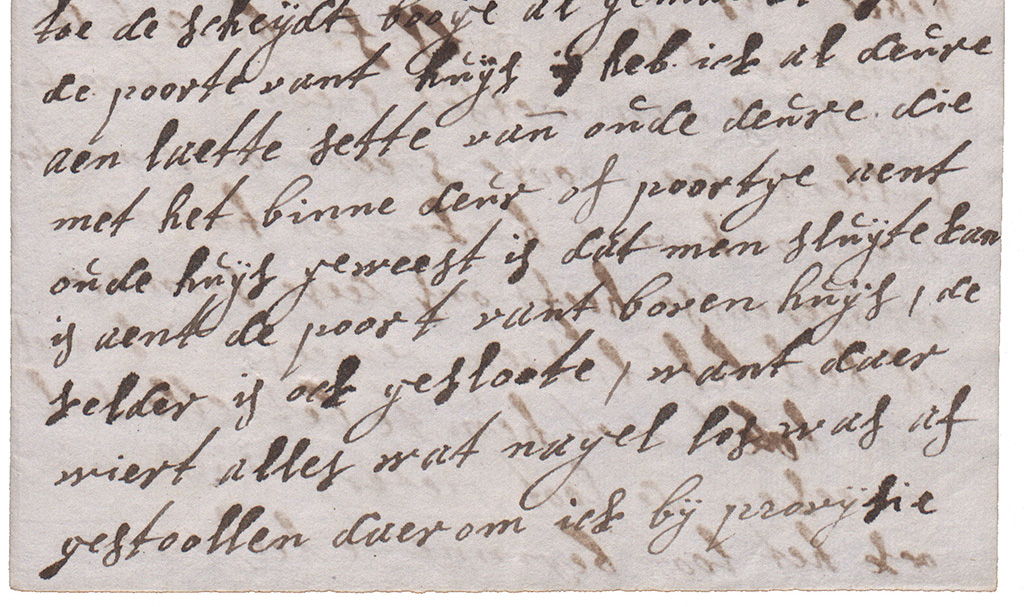 toe de scheÿdt booye al
de poorte vant huÿs heb ick al deure
aen laette sette van oude deure die
met het binne deur of poortye aent
oude huÿs geweest is dat men sluÿte kan
is aent de poort vant boven huÿs, de
kelder is ock geslote, want daer
wiert alles wat nagel los was af
gestoollen daerom ick bÿ provÿsie